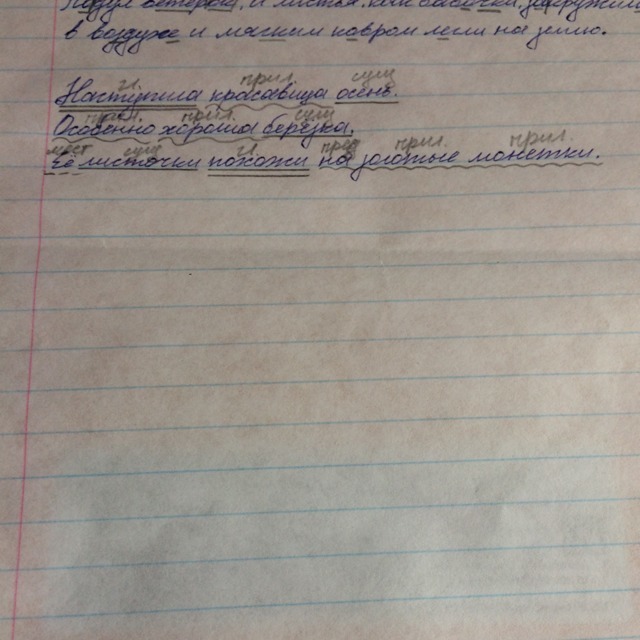 Подул ветерок, и листья, как бабочки, закружили
в воздухе и мягким ковром легли на землю.
гл. прил. сущ
Наступила красавица осень.
прил. прил. сущ
Особенно хороша берёзка.
мест сущ гл. пред прил. прил.
Её листочки похожи на золотые монетки.